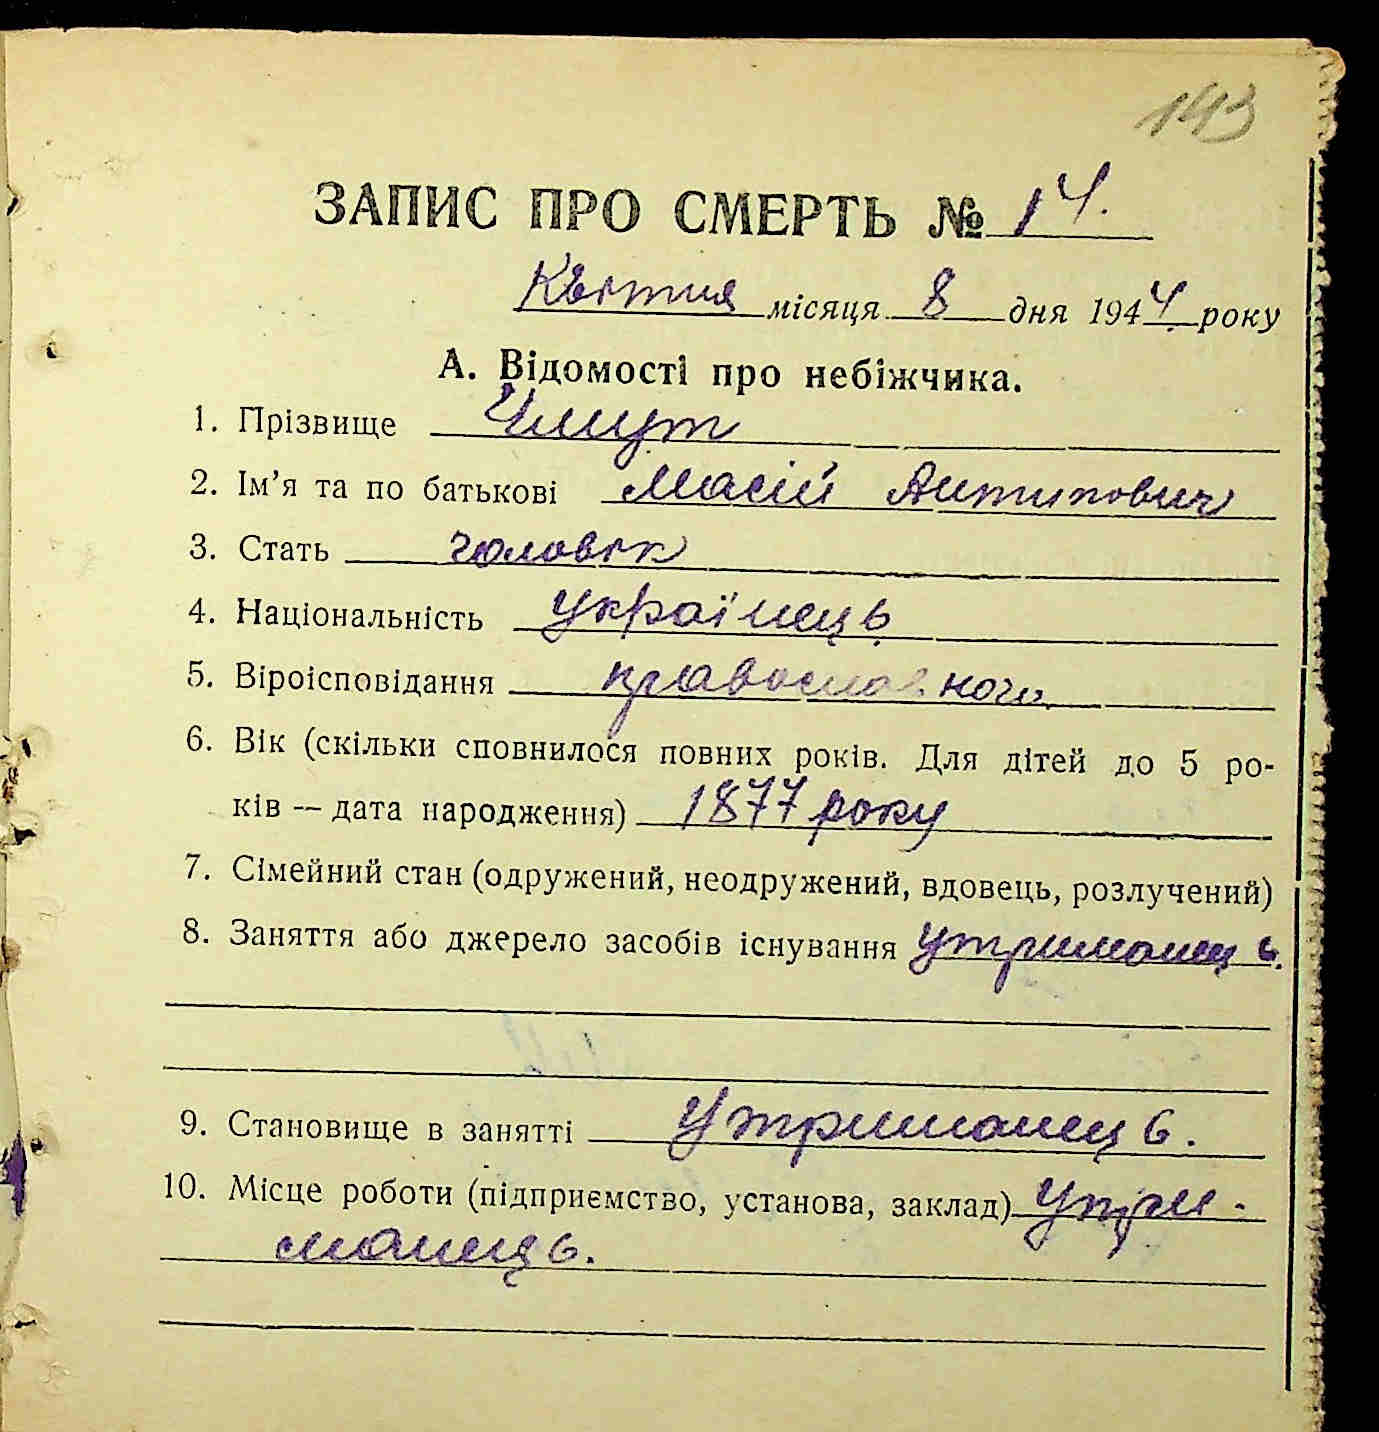 143
ЗАПИС ПРО СМЕРТЬ № 14.
Квітня місяця 8 дня 1944 року
А. Відомості про небіжчика.
1. Прізвище Чмут
2. Ім’я та по батькові Масій Антипович
3. Стать чоловік
4. Національність Українець
5. Віроісповідання православного
6. Вік (скільки сповнилося повних років. Для дітей до 5 ро-
ків — дата народження) 1877 року
7. Сімейний стан (одружений, неодружений, вдовець, розлучений)
8. Заняття або джерело засобів існування утриманець.
9. Становище в занятті Утриманець.
10. Місце роботи (підприємство, установа, заклад) Утри-
манець.